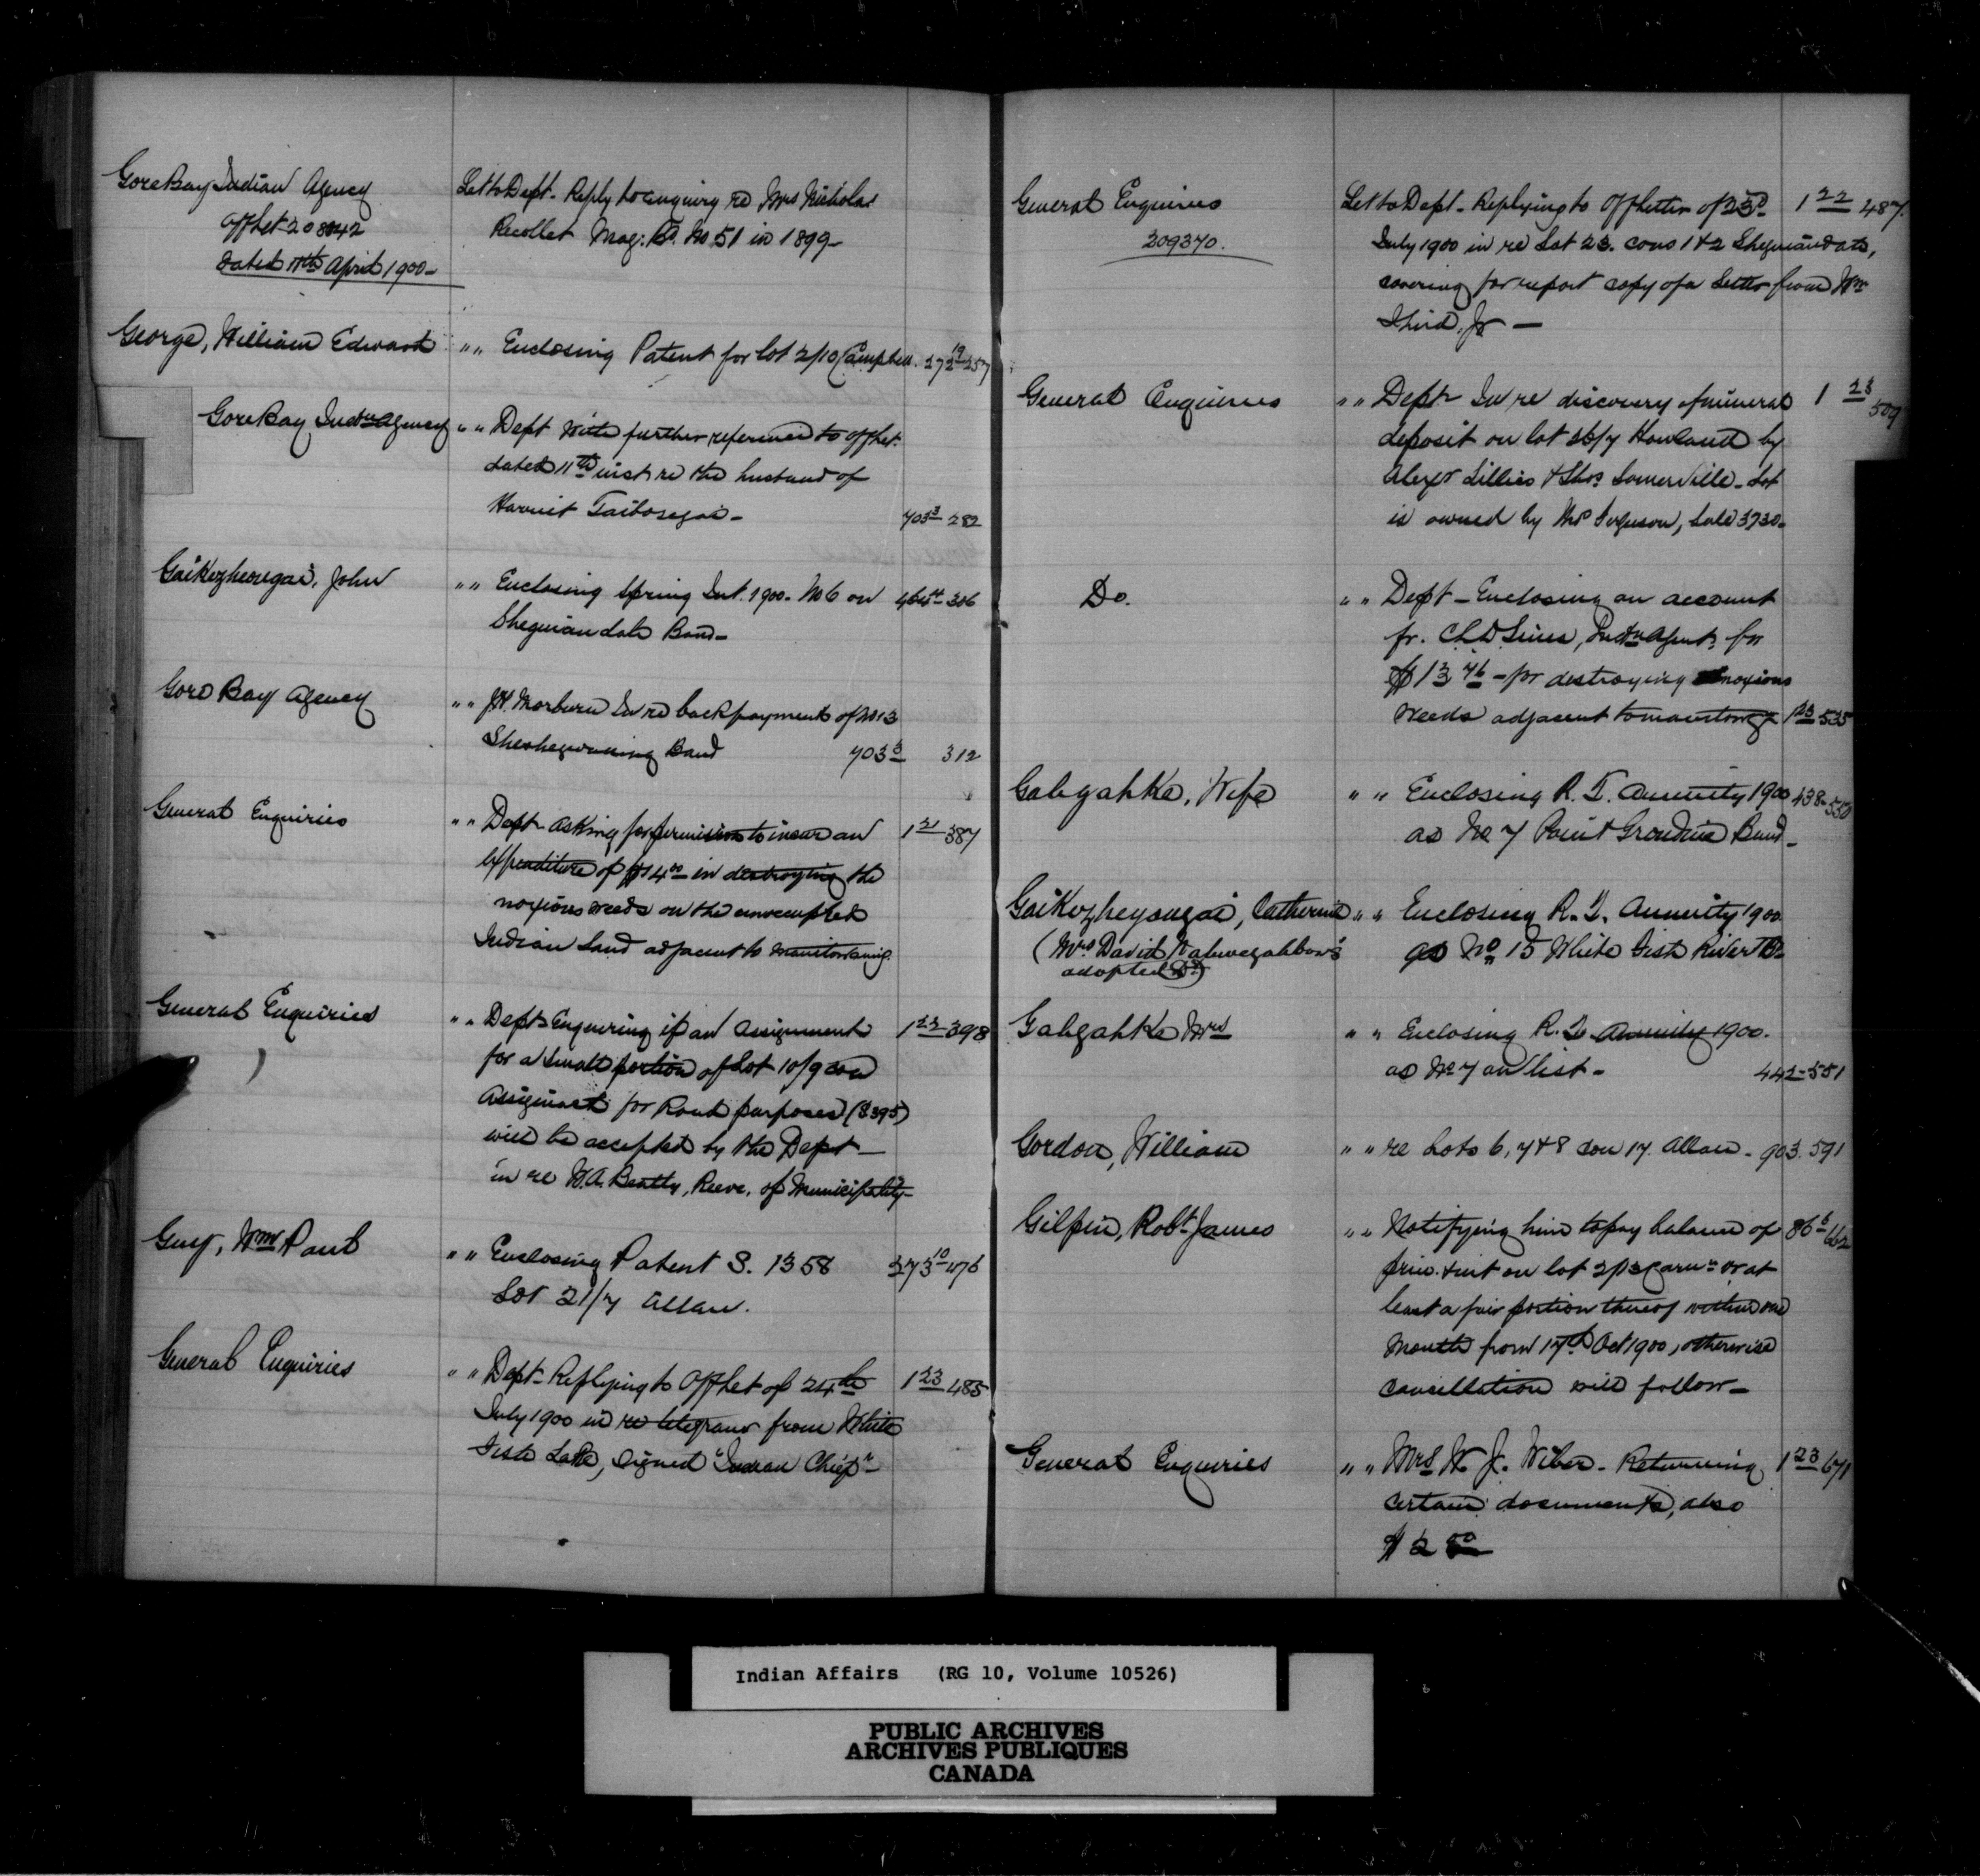 Gore Bay Indian Agency
Off let 208842
dated 11th April 1900-
Let to Dept. Reply to enquiry re Mrs Nicholas
Recollet Mag: Bd. No 51 in 1899-
George, William Edward
" " Enclosing Patent for lot 2/10 Campbell. 272 19 257
Gore Bay Indn Agency
" " Dept with further reference to off let.
dated 11th inst re the husband of
Harriet Taibosegai- 703 3 282
Gaikezheongai, John
" " Enclosing Spring Int. 1900- No 6 on 464 306
Sheguiandah Band-
Gore Bay Agency
" " In re back payment of No 13
Sheshegwaning Band 703 3 312
General Enquiries
" " Dept asking for permission to incur an 1 21 387
Expenditure of $14 00 in destroying the
noxious weeds on the unoccupied
Indian Land adjacent to Manitowaning.
General Enquiries
" " Dept Enquiring if an assignment 1 22 398
for a small portion of Lot 10/9 con
Assiginack for Road purposes (8395)
will be accepted by the Dept-
in re W.A. Beatty, Reeve, of Municipality-
Guy, Wm Paul
" " Enclosing Patent S. 1358 273 10 476
Lot 21/7 Allan.
General Enquiries
" " Dept- Replying to Off let of 24th 1 23 485
July 1900 in re telegram from White
Fish Lake, signed "Indian Chief"
General Enquiries
209370.
Let to Dept- Replying to Off letter of 23d 1 22 487
July 1900 in re Lot 23. cons 1 & 2 Sheguiandah,
covering for report copy of a letter from Wm
Jr-
General Enquiries
" " Dept- In re discovery of mineral 1 23 509
deposit on lot 36/7 Howland by
Alexr Lillies & Thos Somerville- Lot
is owned by Ferguson, Sale 3730-
Do.
" " Dept- Enclosing an account
fr. C.L.D. Sims, Indn Agent, for
$13 76 - for destroying noxious
weeds adjacent to Manitowg- 1 23 535
Gahgahke, Wife
" " Enclosing R. T. Annuity 1900 438-550
as No 7 Point Grondine Band-
Gaikezheyongai, Catherine
(Mrs David Wahwegahbow's
adopted Dr)
" " Enclosing R. T. Annuity 1900
as No 15 White Fish River Bd-
Gahgahke Mrs
" " Enclosing R. T. Annuity 1900.
as No 7 on list- 442-551
Gordon, William
" " re Lots 6, 7 & 8 con 17. Allan- 903. 591
Gilpin, Robt James
" " Notifying him to pay balance of 86 662
prin. & int on lot 2/13 Carnn or at
least a fair portion thereof within one
month from 17th Oct 1900, otherwise
cancellation will follow-
General Enquiries
" " Mrs W. J. Wiber- Returning 1 23 671
certain documents, also
$2 50
Indian Affairs (RG 10, Volume 10526)
PUBLIC ARCHIVES
ARCHIVES PUBLIQUES
CANADA